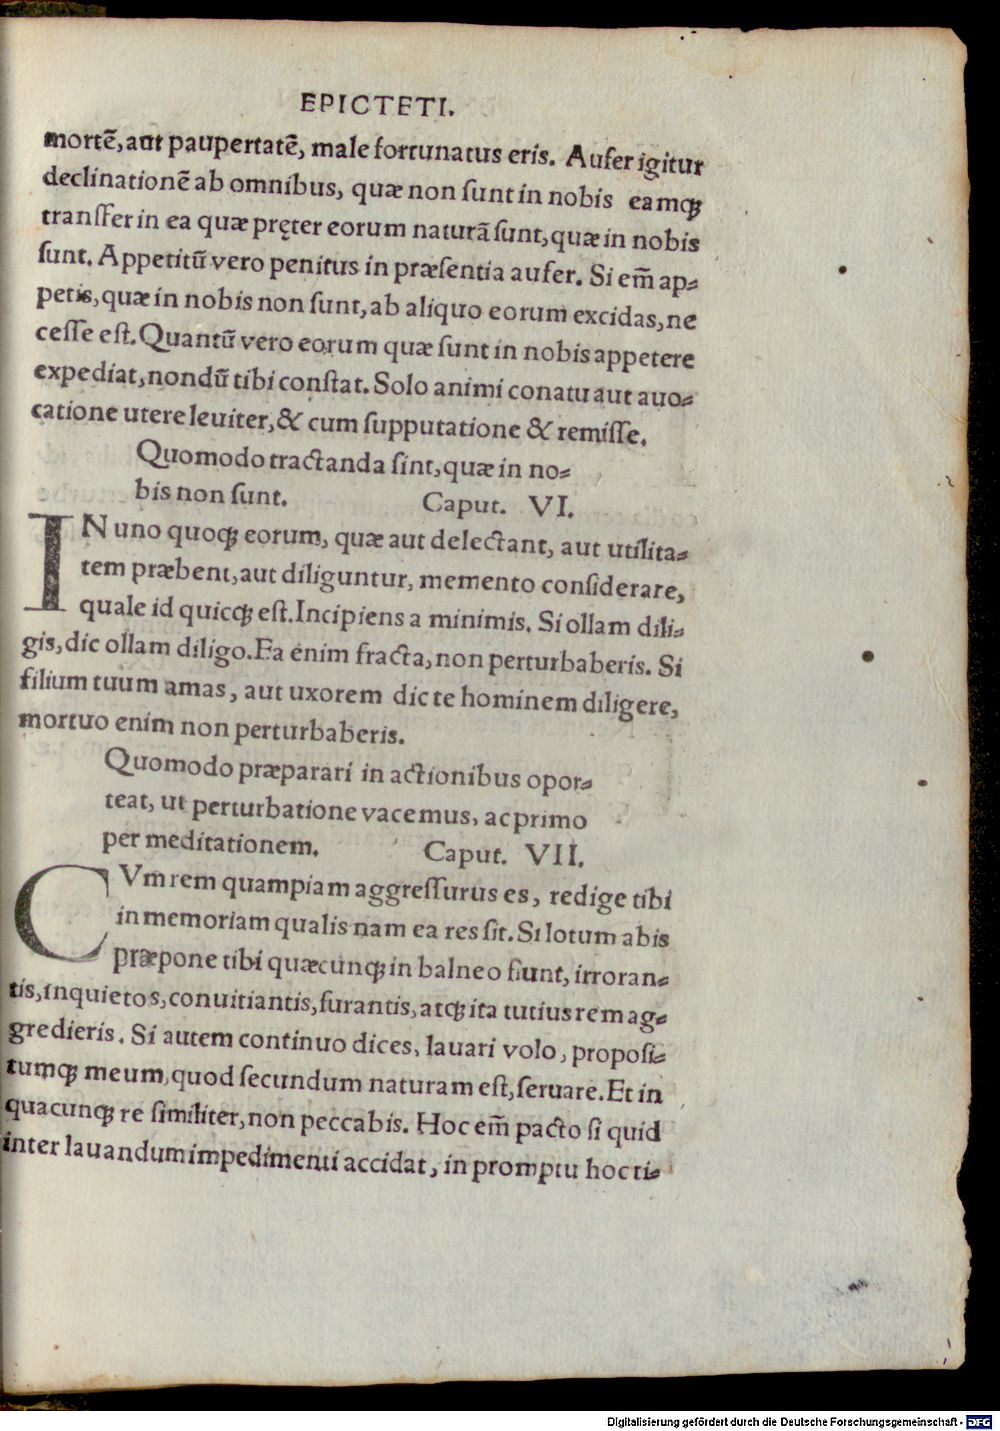 EPICTETI.
mortē, aut paupertatē, male fortunatus eris. Aufer igitur
declinationē ab omnibus, quæ non ſunt in nobis eamqꝫ
tranſfer in ea quæ pręter eorum naturā ſunt, quæ in nobis
ſunt. Appetitū vero penitus in præſentia aufer. Si em̄ ap⸗
petis, quæ in nobis non ſunt, ab aliquo eorum excidas, ne
ceſſe eſt. Quantū vero eorum quæ ſunt in nobis appetere
expediat, nondū tibi conſtat. Solo animi conatu aut auo⸗
catione utere leuiter, & cum ſupputatione & remiſſe.
Quomodo tractanda ſint, quæ in no⸗
bis non ſunt. Caput. VI.
IN uno quoqꝫ eorum, quæ aut delectant, aut utilita⸗
tem præbent, aut diliguntur, memento conſiderare,
quale id quicqꝫ eſt. Incipiens a minimis. Si ollam dili⸗
gis, dic ollam diligo. Ea enim fracta, non perturbaberis. Si
filium tuum amas, aut uxorem dic te hominem diligere,
mortuo enim non perturbaberis.
Quomodo præparari in actionibus opor⸗
teat, ut perturbatione vacemus, ac primo
per meditationem. Caput. VII.
CVm rem quampiam aggreſſurus es, redige tibi
in memoriam qualis nam ea res ſit. Si lotum abis
præpone tibi quæcunqꝫ in balneo fiunt, irroran⸗
tis, inquietos, conuitiantis, furantis, atqꝫ ita tutius rem ag⸗
gredieris. Si autem continuo dices, lauari volo, propoſi⸗
tumqꝫ meum, quod ſecundum naturam eſt, ſeruare. Et in
quacunqꝫ re ſimiliter, non peccabis. Hoc em̄ pacto ſi quid
inter lauandum impedimenti accidat, in promptu hoc ti⸗
Digitalisierung gefördert durch die Deutsche Forschungsgemeinschaft - DFG